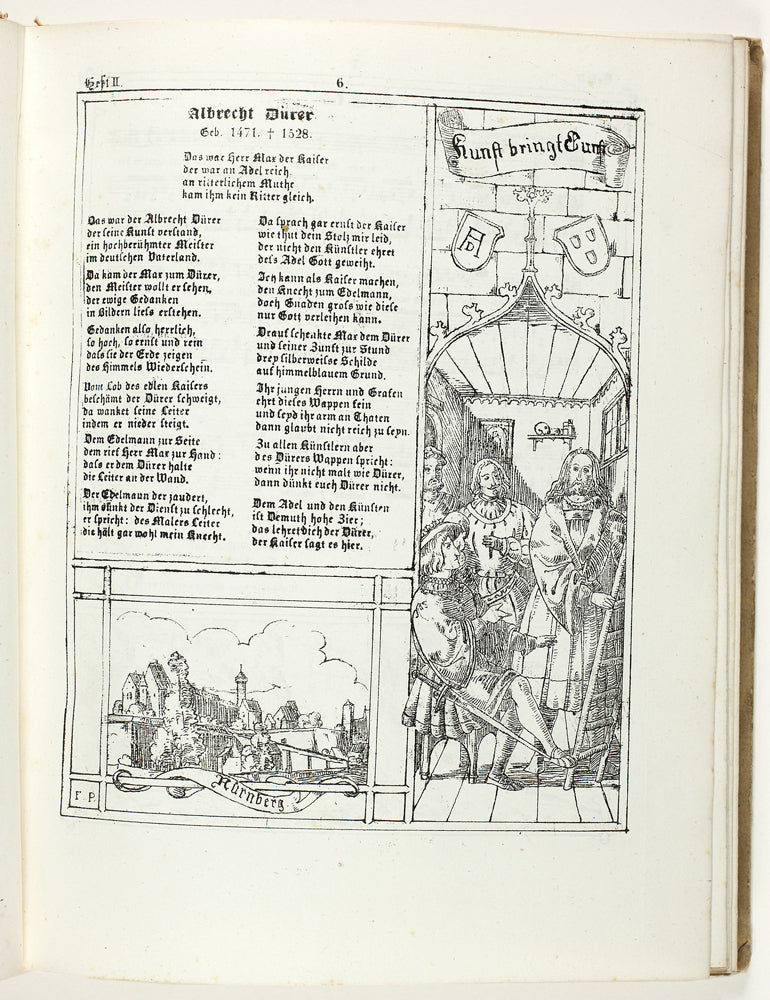 Heft II.
6.
Albrecht Dürer
Geb. 1471. † 1528.
Das war Herr Max der Kaiser
der war an Adel reich,
an ritterlichem Muthe
kam ihm kein Ritter gleich.
Das war der Albrecht Dürer
der seine Kunst verstand,
ein hochberühmter Meister
im deutschen Vaterland.
Da kam der Max zum Dürer,
den Meister wollt er sehen,
der ewige Gedanken
in Bildern liess erstehen.
Gedanken also herrlich,
so hoch, so ernst und rein
dass sie der Erde zeigen
des Himmels Wiederschein.
Vom Lob des edlen Kaisers
beschämt der Dürer schweigt,
da wanket seine Leiter
indem er nieder steigt.
Dem Edelmann zur Seite
dem rief Herr Max zur Hand:
dass er dem Dürer halte
die Leiter an der Wand.
Der Edelmann der zaudert,
ihm dünkt der Dienst zu schlecht,
er spricht: des Malers Leiter
die hält gar wohl mein Knecht.
Da sprach gar ernst der Kaiser
wie thut dein Stolz mir leid,
der nicht den Künstler ehret
dess Adel Gott geweiht.
Ich kann als Kaiser machen,
den Knecht zum Edelmann,
doch Gnaden gross wie diese
nur Gott verleihen kann.
Drauf schenkte Max dem Dürer
und seiner Zunft zur Stund
drey silberweisse Schilde
auf himmelblauem Grund.
Ihr jungen Herrn und Grafen
ehrt dieses Wappen fein
und seyd ihr arm an Thaten
dann glaubt nicht reich zu seyn.
Zu allen Künstlern aber
des Dürers Wappen spricht:
wenn ihr nicht malt wie Dürer,
dann dünkt euch Dürer nicht.
Dem Adel und den Künsten
ist Demuth hohe Zier;
das lehret dich der Dürer,
der Kaiser sagt es hier.
Kunst bringt Gunst
AD
Nürnberg
F. P.